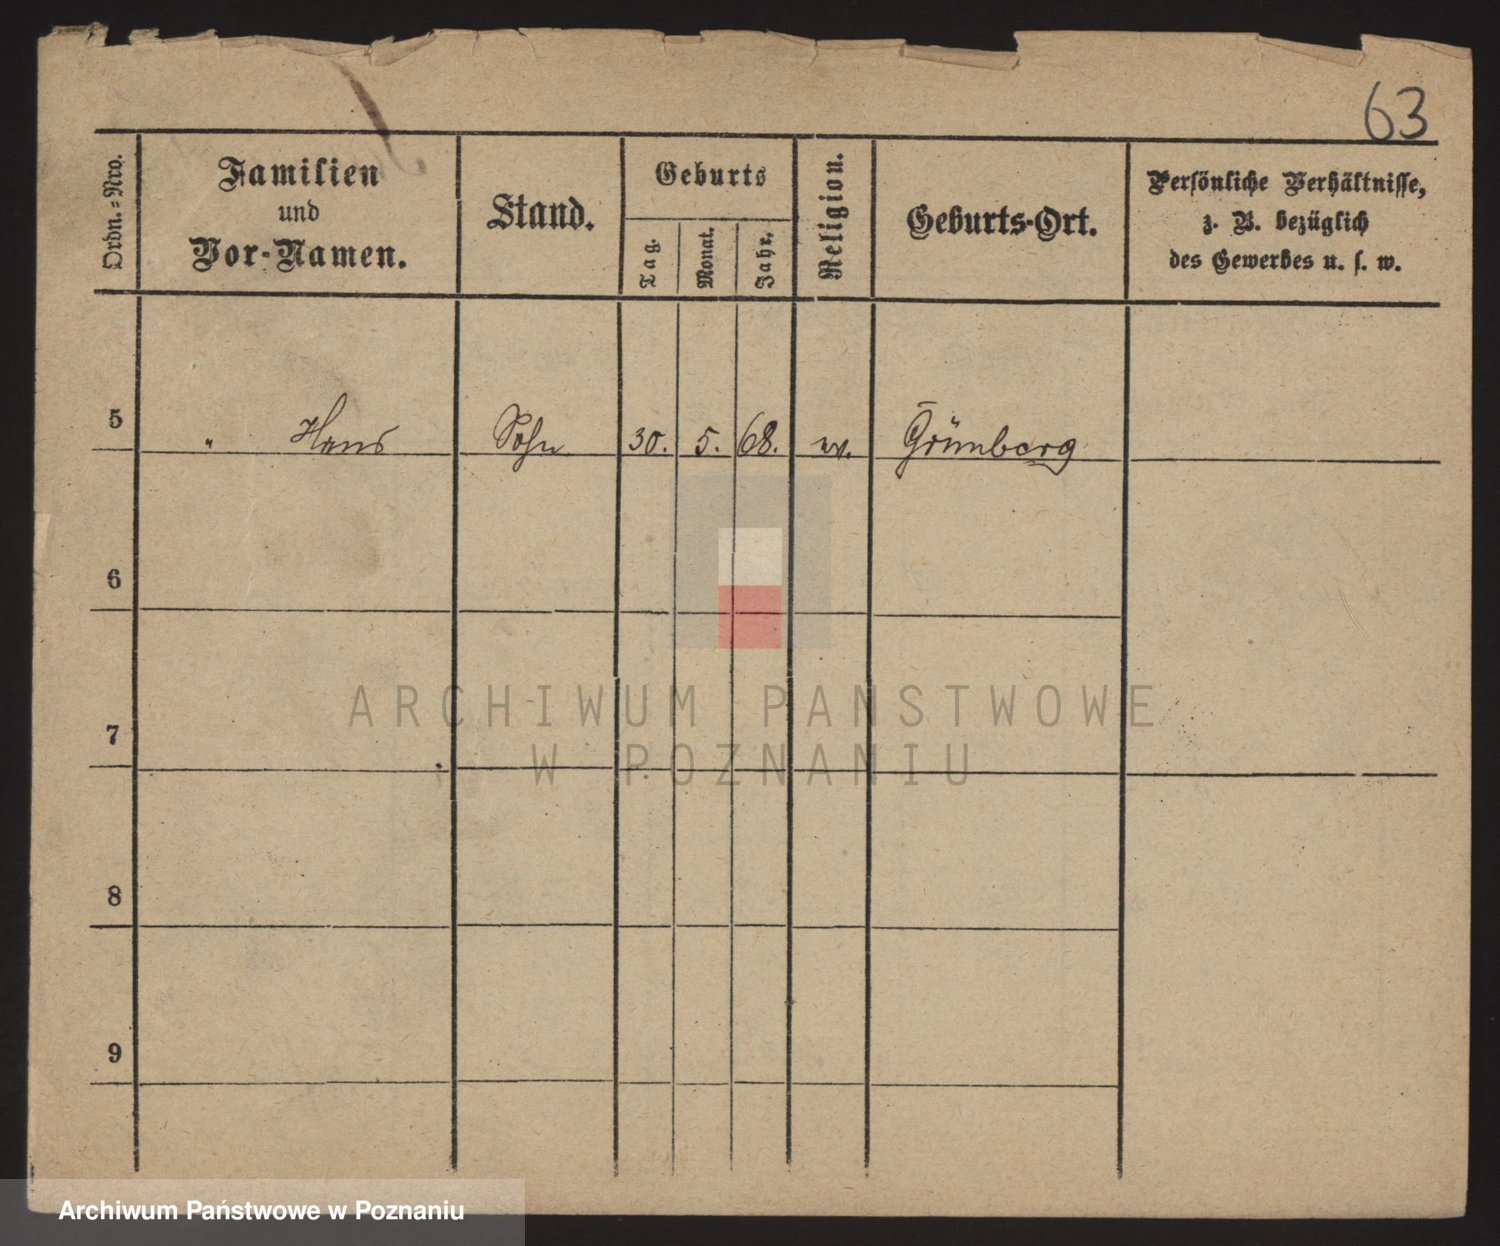 63
Ordn.-Nro.
Familien
und
Vor-Namen.
Stand.
Geburts
Tag.
Monat.
Jahr.
Religion.
Geburts-Ort.
Persönliche Verhältnisse,
z. B. bezüglich
des Gewerbes u. s. w.
5 " Hans Sohn 30. 5. 68. Grünberg
6
7
8
9
ARCHIWUM PANSTWOWE
W POZNANIU
Archiwum Państwowe w Poznaniu